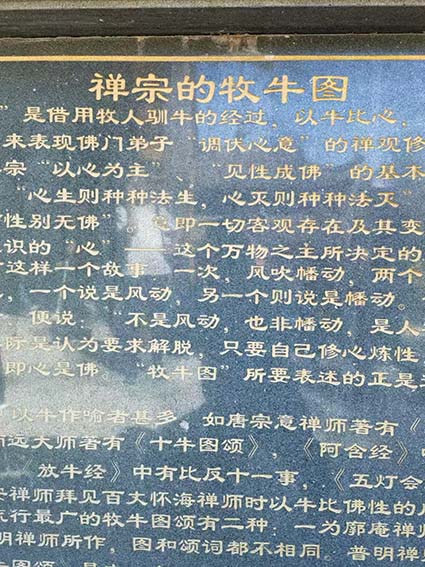 禅宗的牧牛图
”是借用牧人驯牛的经过，以牛比心，
来表现佛门弟子“调伏心意”的禅观修
宗“以心为主”、“见性成佛”的基本
“心生则种种法生，心灭则种种法灭”
性别无佛”。 即一切客观存在及其变
识的“心”——这个万物之主所决定的
这样一个故事 一次，风吹幡动，两个
，一个说是风动，另一个则说是幡动。
便说：“不是风动，也非幡动，是人
际是认为要求解脱，只要自己修心炼性
即心是佛。“牧牛图”所要表述的正是
以牛作喻者甚多 如唐宗意禅师著有《
远大师著有《十牛图颂》，《阿含经》中
放牛经》中有比反十一事，《五灯会
禅师拜见百丈怀海禅师时以牛比佛性的
流行最广的牧牛图颂有二种．一为廓庵禅师
明禅师所作，图和颂词都不相同．普明禅师
牛图颂